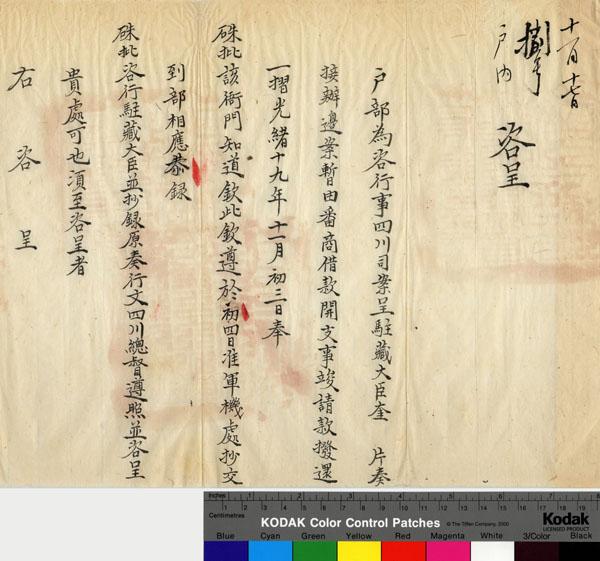 十一月十一日
戶內
咨呈
戶部為咨行事四川司案呈駐藏大臣奎 片奏
接辦邊案暫由番商借款開支事竣請款撥還
一摺光緒十九年十一月初三日奉
硃批該衙門知道欽此欽遵於初四日准軍機處抄交
到部相應恭錄
硃批咨行駐藏大臣並抄錄原奏行文四川總督遵照並咨呈
貴處可也須至咨呈者
右咨呈
Inches
Centimetres
KODAK Color Control Patches
© The Tiffen Company, 2000
Kodak
LICENSED PRODUCT
Blue Cyan Green Yellow Red Magenta White 3/Color Black